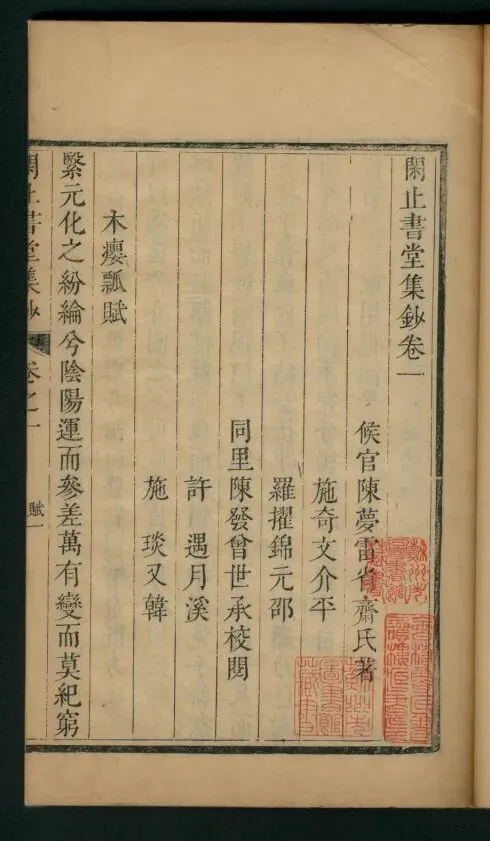 閑止書堂集鈔卷一
候官陳夢雷省齋氏著
施奇文介平
羅擢錦元邵
同里陳發曾世承校閱
許遇月溪
施琰又韓
木癭瓢賦
繄元化之紛綸兮陰陽運而參差萬有變而莫紀窮
閑止書堂集鈔 卷之一 賦 一